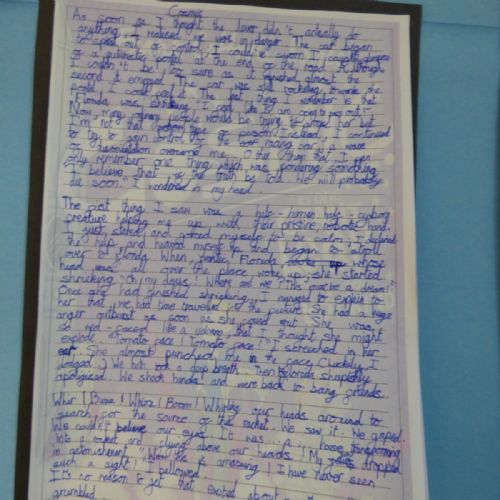 Cosmic
As soon as I thought the lever didn't actually do
anything, I realised we were in danger. The car began
to spin out of control. I could've sworn I caught a glimpse
of a futuristic portal at the end of the road. Although
I couldn't be for sure as it vanished almost the
second it emerged. The car was still rocketing towards the
portal I could see it. The last thing I remember is that
Florida was shrieking "I feel like I am going to pass out!"
Now many people would be trying to help her but
I'm not that type of person. Instead, I continued
to try to gain control of the car a wave
of disorientation overcame me. Other than that, I
only remember one thing which was pondering something
I believe, that if the truth be told "We will probably
die soon." I wondered in my head.
The first thing I saw was a half-human half-cyborg
creature helping me up with four pristine, robotic hands.
I just stared and forced myself to be calm. I declined
the help and heaved myself up and began to stroll
over to Florida. When, frantic, Florida whose
head was all over the place woke up, she started
shrieking "Oh my days! Where are we? This must be a dream!"
Once she had finished shrieking, I managed to explain to
her that we had time travelled into the future. She had a huge
anger outburst as soon as she found out. She was
so red-faced like a volcano that I thought she might
explode. "Tomato face! Tomato face!" I screeched in her
ear. She almost punched me in the face (Luckily, I
dodged.) We both took a deep breath. Then Florida sheepishly
apologised. We shook hands and went back to being friends.
Whir! Buzz! Whizz! Boom! Whirling our heads around to
search for the source of the racket. We saw it. We gasped.
We couldn't believe our eyes. It was... a... house transforming
into a robot and flying above our heads! My jaws dropped
in astonishment. "Wow this is amazing! I have never seen
such a sight!" I bellowed.
It's no reason to get that excited about
grumbled